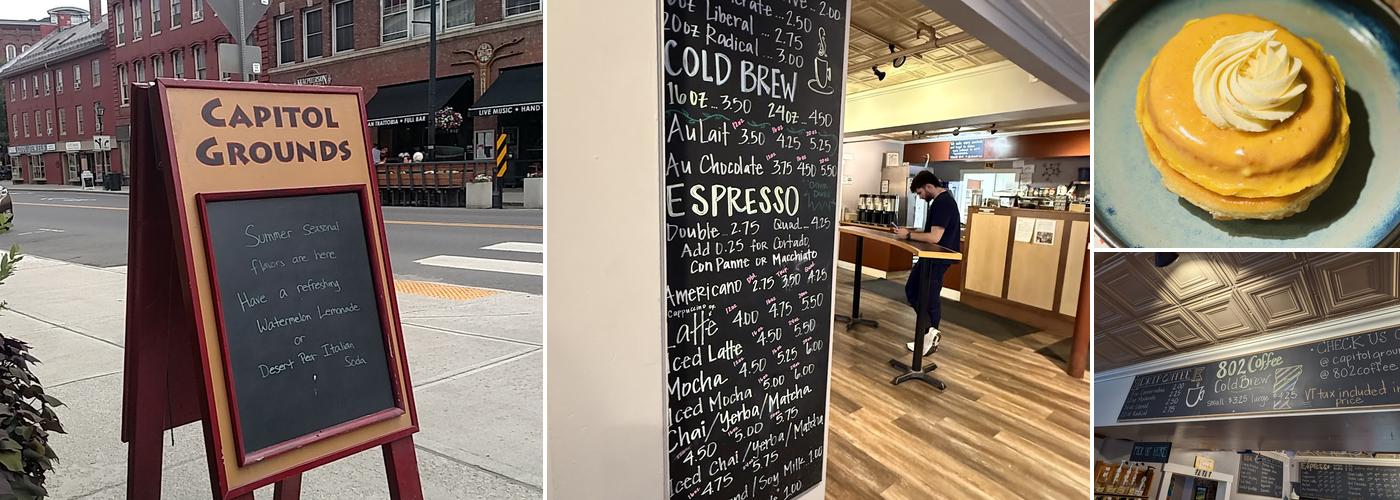 CAPITOL
GROUNDS
Summer Seasonal
flavors are here.
Have a refreshing
Watermelon Lemonade
or
Desert Pear Italian
Soda
MACPHERSON
AN TRATTORIA • FULL BAR
LIVE MUSIC • HAND
2.00
2.50
oz Liberal ... 2.75
20oz Radical ... 3.00
COLD BREW
16oz ... 3.50 24oz .. 4.50
Au Lait 12oz 3.50 16oz 4.25 20oz 5.25
Au Chocolate 12oz 3.75 16oz 4.50 20oz 5.50
ESPRESSO
Double .. 2.75 Quad .. 4.25
Add 0.25 for Cortado,
Con Panne or Macchiato
Americano 2.75 3.50 4.25
Cappuccino or
Latte 12oz 4.00 16oz 4.75 20oz 5.50
Iced Latte 4.50 5.50
Mocha 4.50 5.25 6.00
Iced Mocha 5.00 6.00
Chai/Yerba/Matcha
4.50 5.00 5.75
Iced Chai/Yerba/Matcha
4.75 5.75
nd/Soy Milk .. 1.00
1.00
802 Coffee
Cold Brew
small $3.25 large $4.25
2.00
2.25
2.50
2.75
• CHECK US
@capitolgrou
@802coffee
VT tax included in
price
PICK UP HERE
ESPRESSO